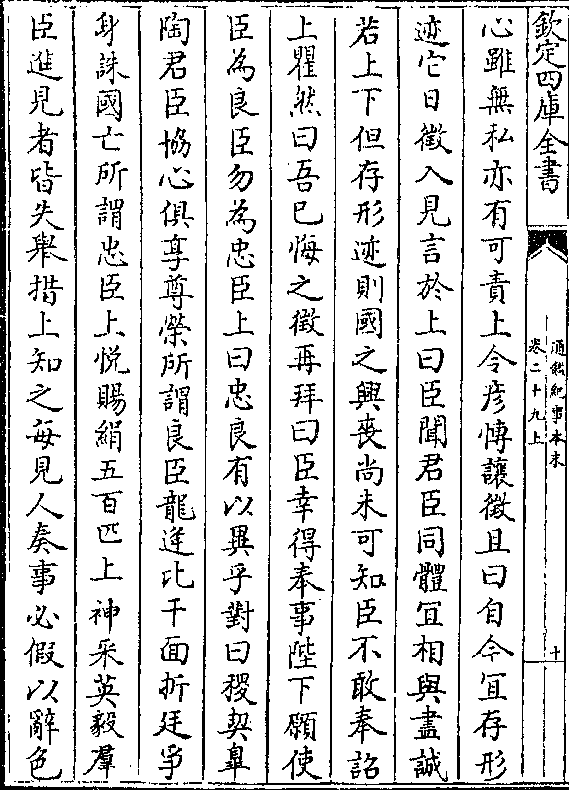 欽定四庫全書
通鑑紀事本末
卷二十九上
十
心雖無私亦有可責上令彦博讓徵且曰自今宜存形
迹它日徵入見言於上曰臣聞君臣同體宜相與盡誠
若上下但存形迹則國之興喪尚未可知臣不敢奉詔
上瞿然曰吾已悔之徵再拜曰臣幸得奉事陛下願使
臣為良臣勿為忠臣上曰忠良有以異乎對曰稷契臯
陶君臣協心俱享尊榮所謂良臣龍逄比干面折廷爭
身誅國亡所謂忠臣上悦賜絹五百匹上神采英毅羣
臣進見者皆失舉措上知之每見人奏事必假以辭色